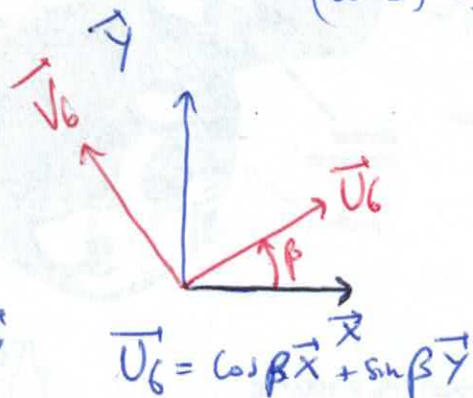 Y
V6
U6
β
X
U6 = cosβ X + sinβ Y